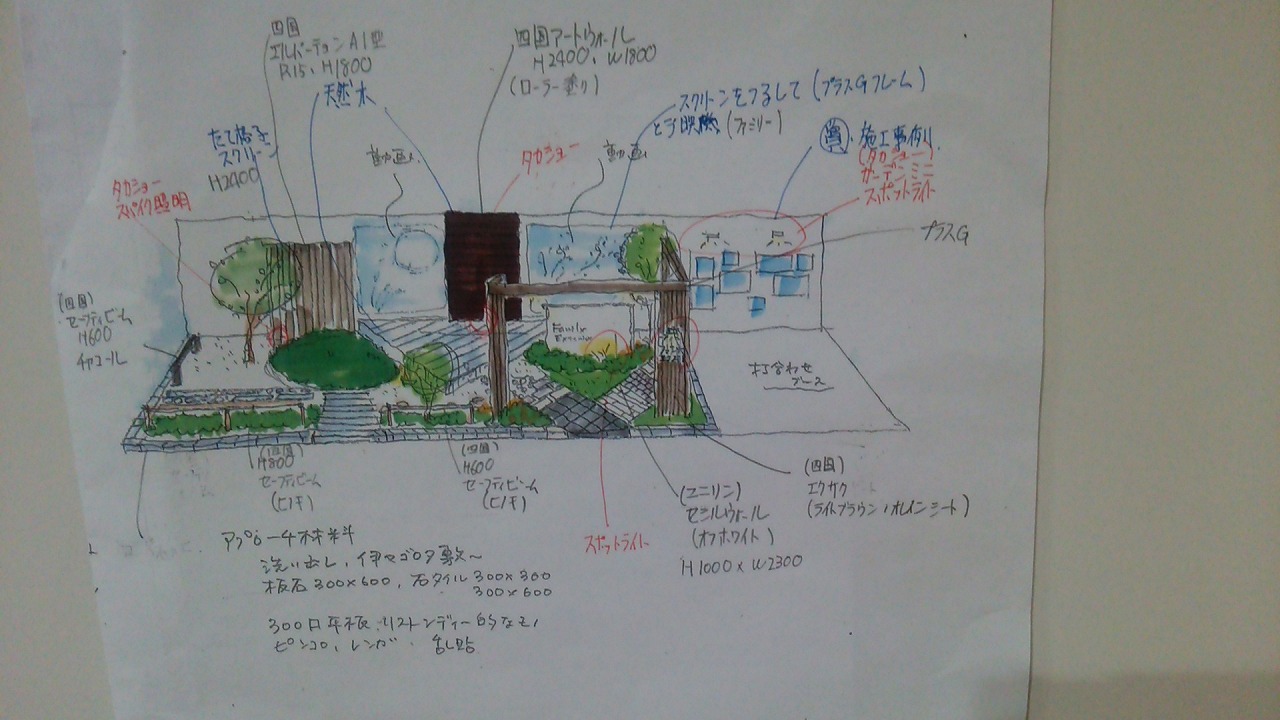 四国
エルバーテョンA1型
R15、H1800
天然木
四国アートウォール
H2400、W1800
(ローラー塗り)
スクリーンをつるして(プラスGフレーム)
(ファミリー)
施工事例
(タカショー)
ガーデンミニ
スポットライト
プラスG
たて格子
スクリーン
H2400
動画
タカショー
動画
タカショー
スパイク照明
(四国)
セーフティビーム
H600
チャコール
Family
Exterior
打合わせ
ブース
(四国)
H800
セーフティビーム
(ヒノキ)
(四国)
H600
セーフティビーム
(ヒノキ)
スポットライト
(ユニリン)
セシルウォール
(オフホワイト)
H1000×W2300
(四国)
エクサク
(ライトブラウン
アプローチ材料
洗い出し、伊セゴロタ敷〜
板石300×600、石タイル300×300
300×600
300口平板
ピンコロ、レンガ、乱貼